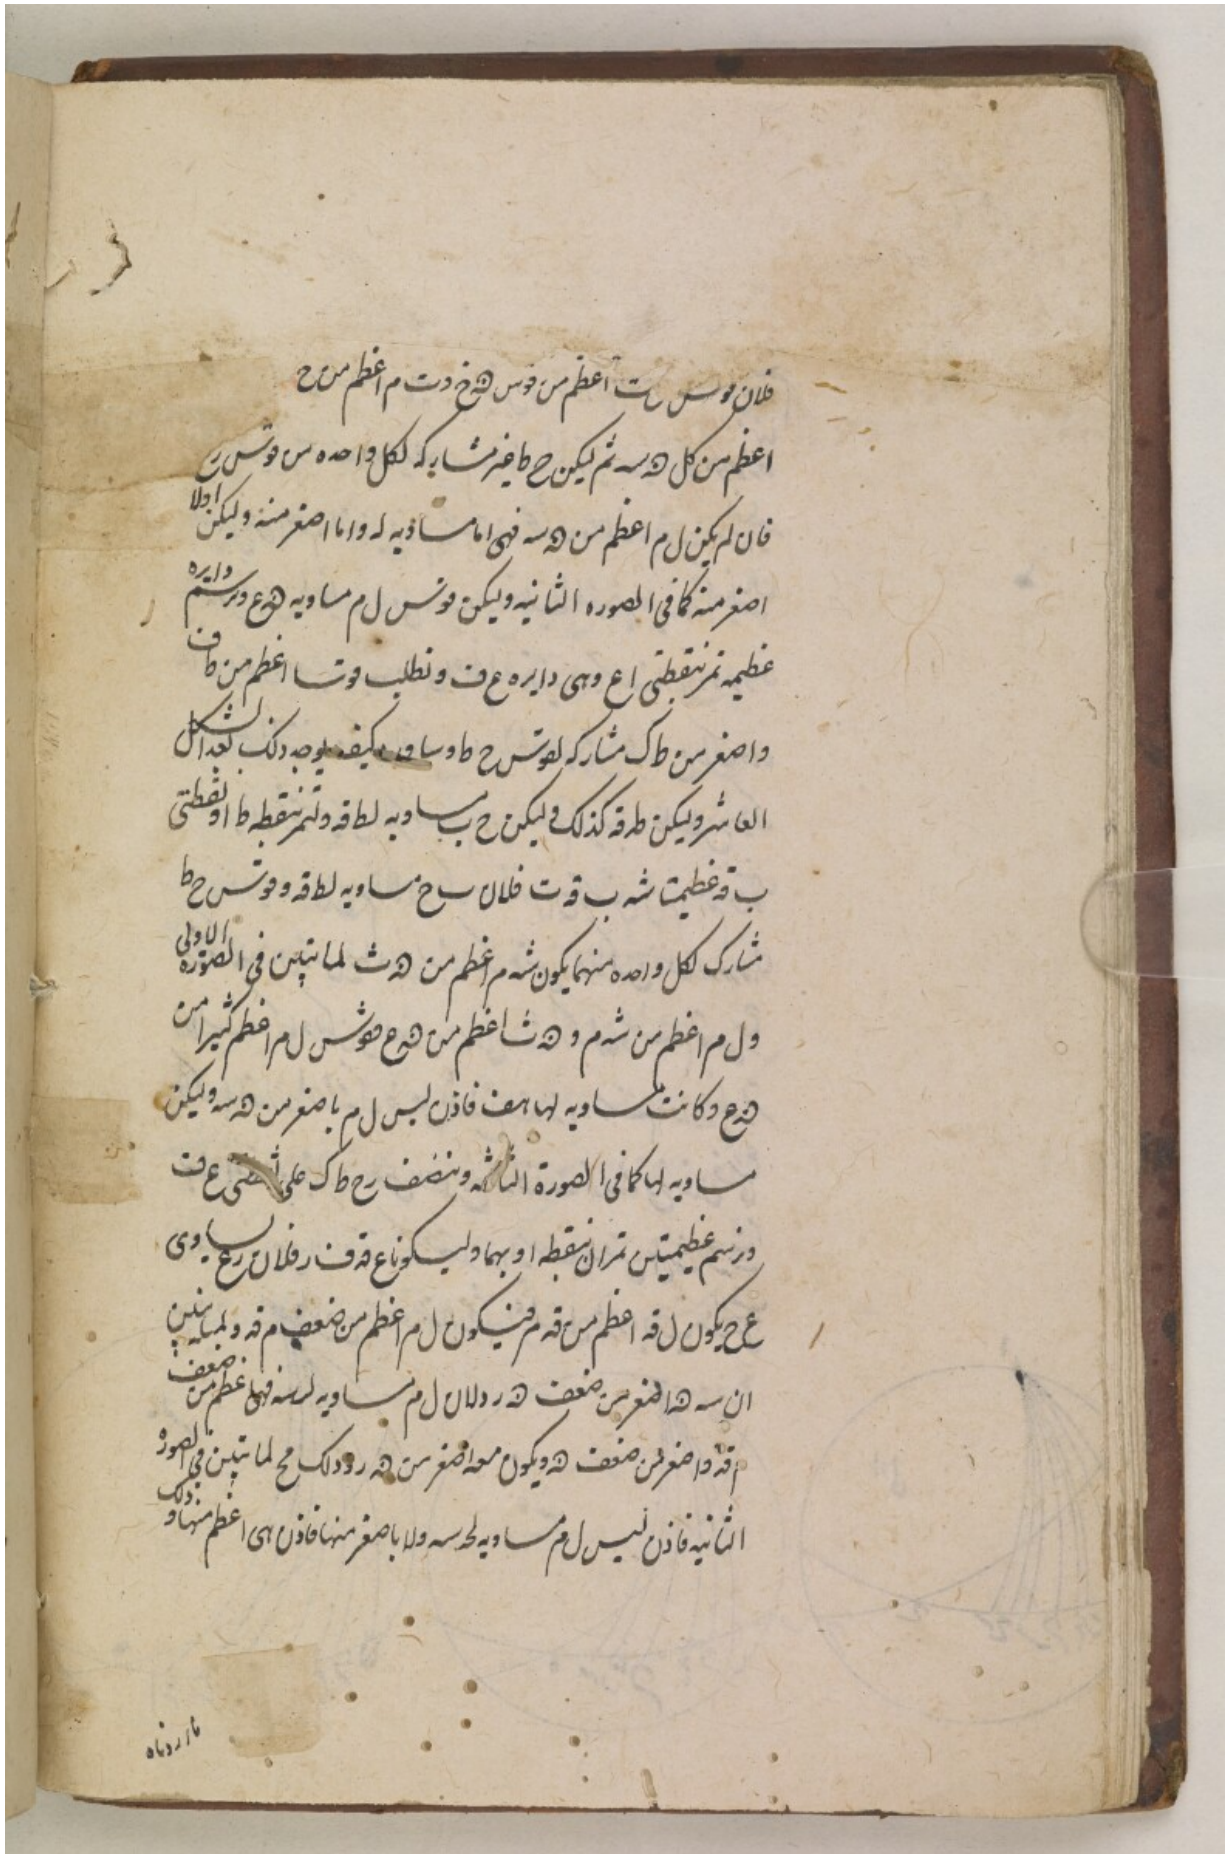 فلان قوس ر ت اعظم من قوس هـ خ و ت م اعظم من ح
اعظم من كل هـ سه ثم ليكن ح ط غير مشاركه لكل واحده من قوسى ر
فان لم يكن ل م اعظم من هـ سه فهى اما مساويه له واما اصغر منه وليكن اولا
اصغر منه كما فى الصوره الثانيه وليكن قوس ل م مساويه هـ ع ونرسم دايره
عظيمه تمر بنقطتى ا ع وهى دايره ع ف ونطلب قوسا اعظم من ط ف
واصغر من ط ك مشاركه لقوس ح ط وسياتى كيف يوجد ذلك بعد الشكل
العاشر وليكن ط قه كذلك وليكن ح ب مساويه لط قه ولتمر بنقطه ط او نقطتى
ب قه عظيمتا شه ب قه ت فلان س ح مساويه لط قه وقوس ح ط
مشارك لكل واحده منهما يكون شه م اعظم من هـ ث لما تبين فى الصوره الاولى
و ل م اعظم من شه م و هـ ث اعظم من هـ ع فقوس ل م اعظم كثيرا من
هـ ع وكانت مساويه لها هف فاذن ليس ل م باصغر من هـ سه وليكن
مساويه لها كما فى الصورة الثالثه وننصف ر ح ط ك على نقطتى ع ف
ونرسم عظيمتين تمران بنقطه ا وبهما وليكونا ع قه ف ر فلان ر ع يساوى
ع ح يكون ل قه اعظم من قه م فيكون ل م اعظم من ضعف م قه ولمثله يتبين
ان سه هـ اصغر من ضعف هـ ر ولان ل م مساويه لهـ سه فهى اعظم من ضعف
م قه واصغر من ضعف هـ ر ويكون م قه اصغر من هـ ر وذلك مح لما تبين فى الصوره
الثانيه فاذن ليس ل م مساويه لهـ سه ولا باصغر منها فاذن هى اعظم منها وذلك
ما اردناه